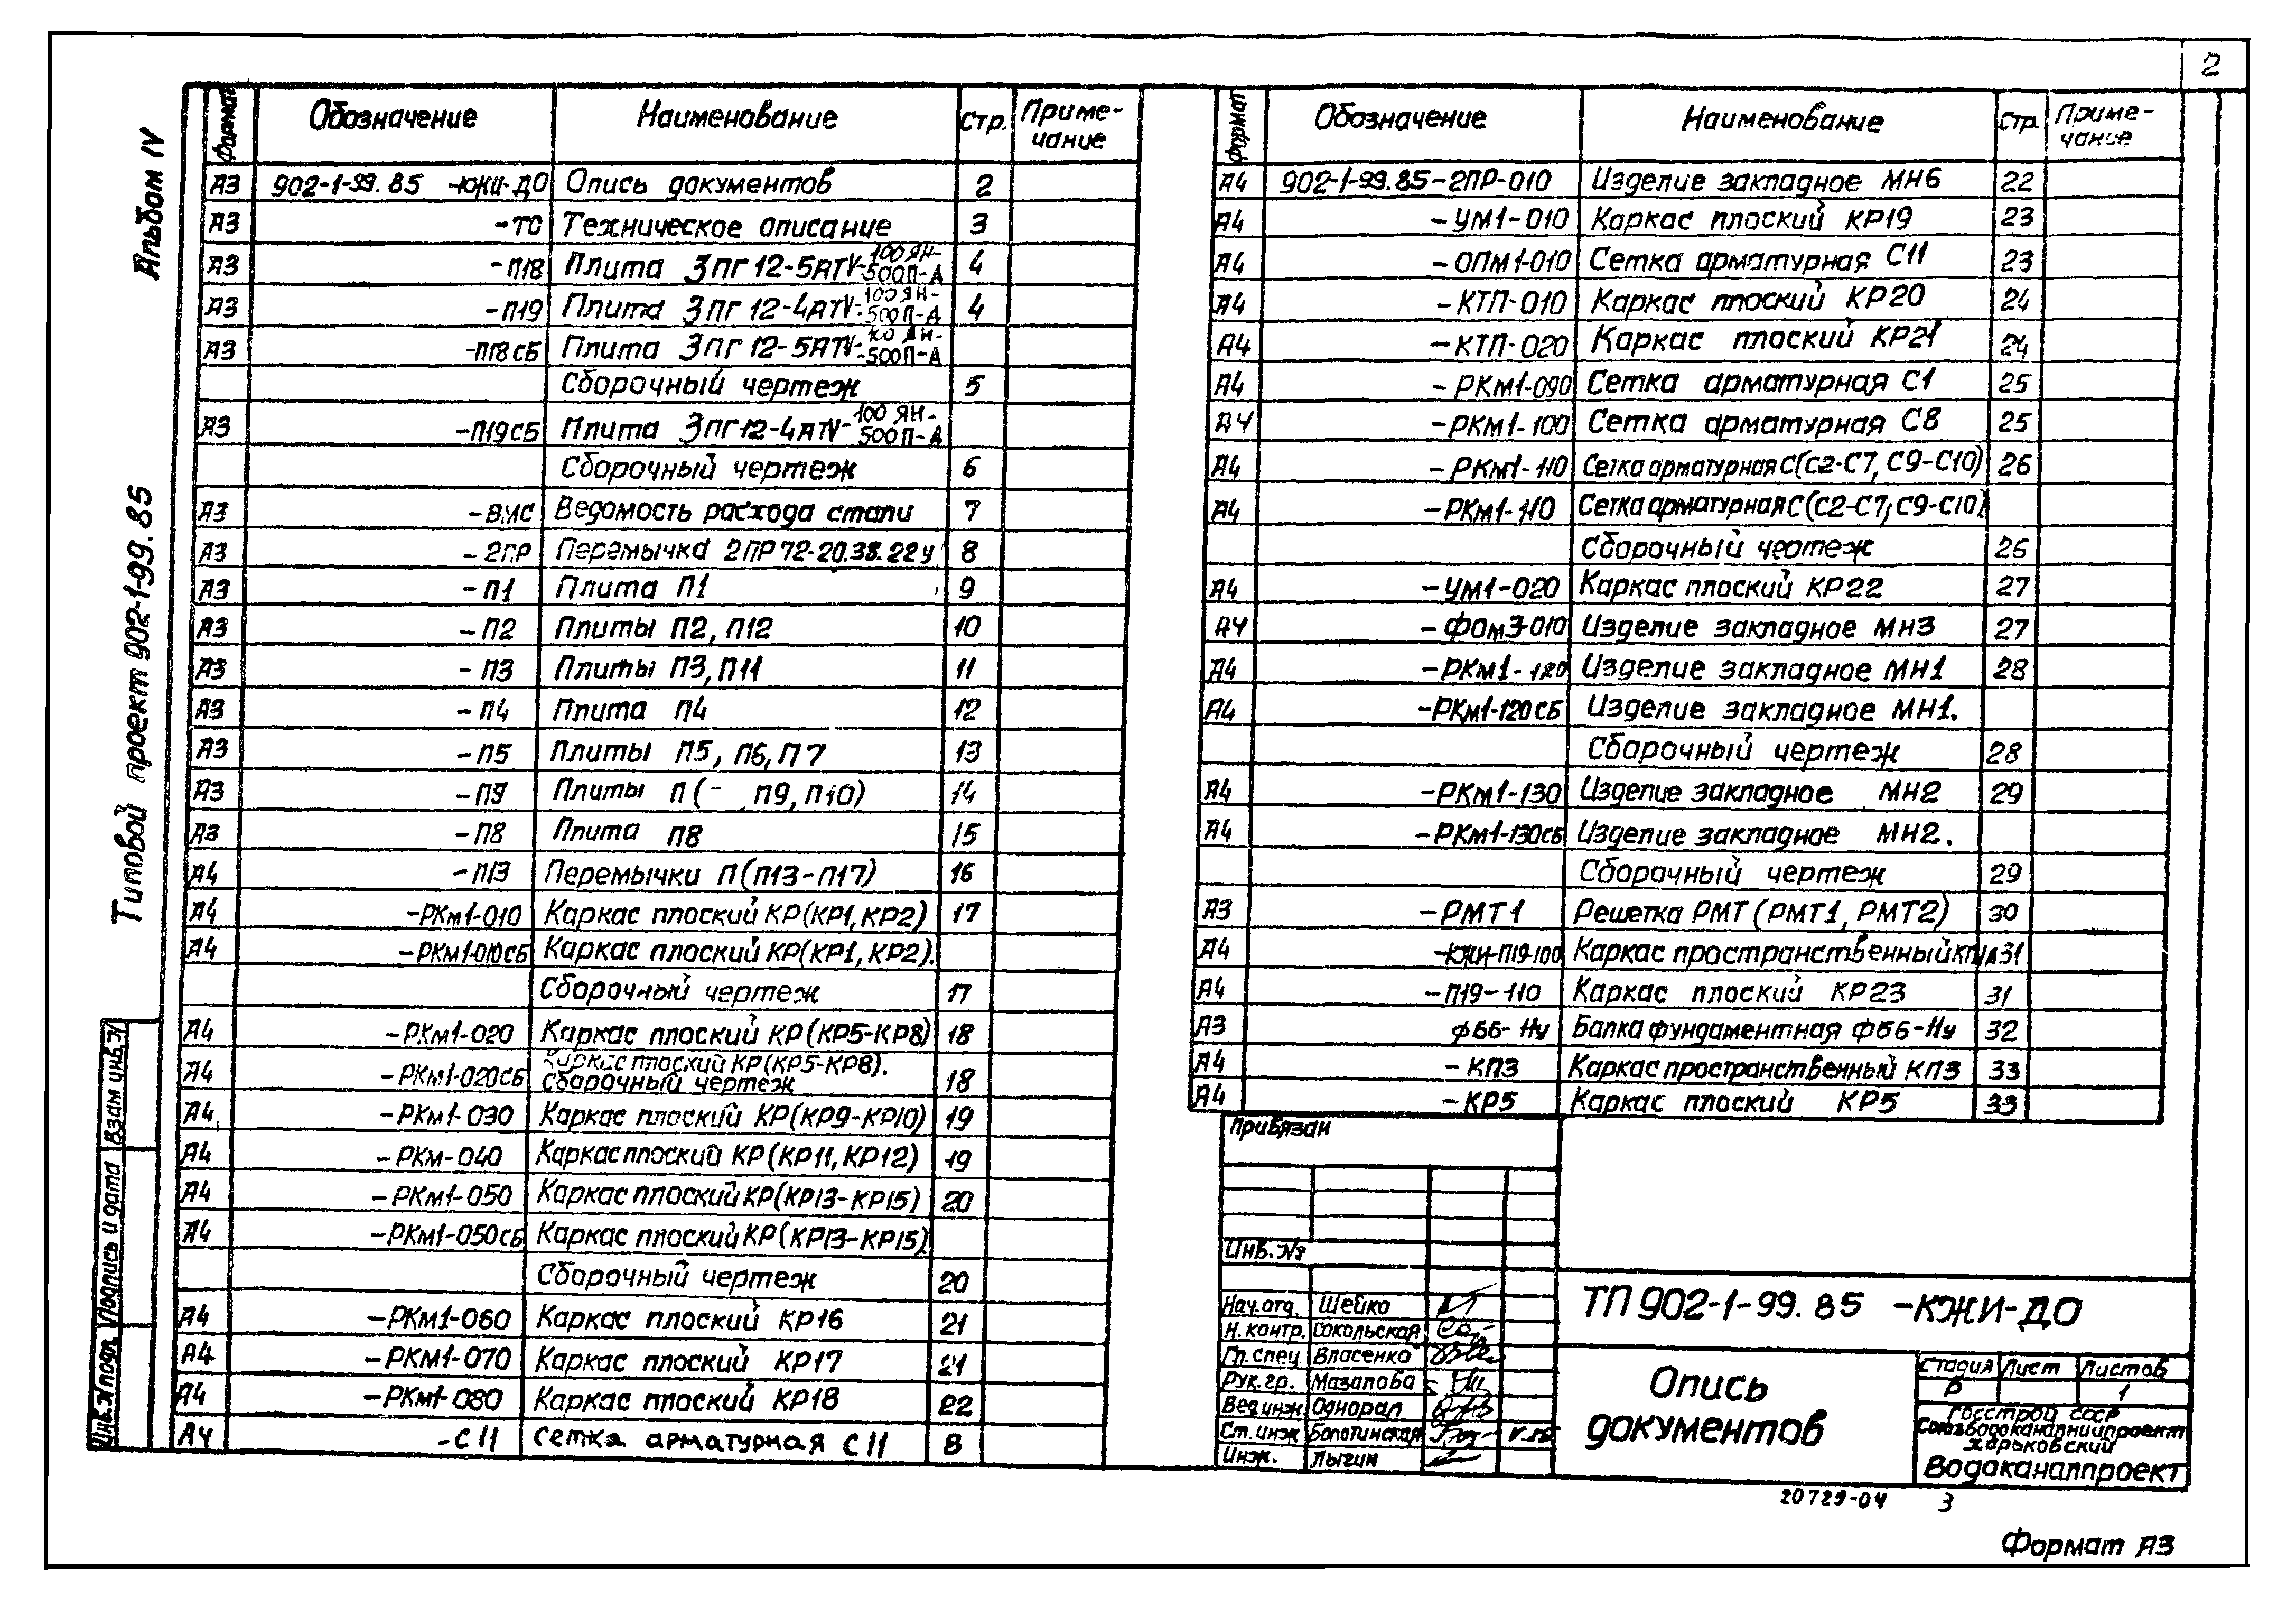 2
Альбом IV
Типовой проект 902-1-99.85
Взам инв.№
Подпись и дата
Инв.№подл.
Формат Обозначение Наименование Стр. Приме-
чание
А3 902-1-99.85 -КЖИ-ДО Опись документов 2
А3 -ТО Техническое описание 3
А3 -П18 Плита 3ПГ12-5АТV-100ЯН-
500П-А 4
А3 -П19 Плита 3ПГ12-4АТV-100ЯН-
500П-А 4
А3 -П18СБ Плита 3ПГ12-5АТV-100ЯН-
500П-А
Сборочный чертеж 5
А3 -П19СБ Плита 3ПГ12-4АТV-100ЯН-
500П-А
Сборочный чертеж 6
А3 -ВМС Ведомость расхода стали 7
А3 -2ПР Перемычка 2ПР72-20.38.22у 8
А3 -П1 Плита П1 9
А3 -П2 Плиты П2, П12 10
А3 -П3 Плиты П3, П11 11
А3 -П4 Плита П4 12
А3 -П5 Плиты П5, П6, П7 13
А3 -П9 Плиты П(- ,П9, П10) 14
А3 -П8 Плита П8 15
А4 -П13 Перемычки П(П13-П17) 16
А4 -РКм1-010 Каркас плоский КР(КР1, КР2) 17
А4 -РКм1-010СБ Каркас плоский КР(КР1, КР2).
Сборочный чертеж 17
А4 -РКм1-020 Каркас плоский КР(КР5-КР8) 18
А4 -РКм1-020СБ Каркас плоский КР(КР5-КР8).
Сборочный чертеж 18
А4 -РКм1-030 Каркас плоский КР(КР9-КР10) 19
А4 -РКм-040 Каркас плоский КР(КР11, КР12) 19
А4 -РКм1-050 Каркас плоский КР(КР13-КР15) 20
А4 -РКм1-050СБ Каркас плоский КР(КР13-КР15)
Сборочный чертеж 20
А4 -РКм1-060 Каркас плоский КР16 21
А4 -РКм1-070 Каркас плоский КР17 21
А4 -РКм1-080 Каркас плоский КР18 22
А4 -С11 Сетка арматурная С11 8
Формат Обозначение Наименование Стр. Приме-
чание
А4 902-1-99.85-2ПР-010 Изделие закладное МН6 22
А4 -УМ1-010 Каркас плоский КР19 23
А4 -ОПм1-010 Сетка арматурная С11 23
А4 -КТП-010 Каркас плоский КР20 24
А4 -КТП-020 Каркас плоский КР21 24
А4 -РКм1-090 Сетка арматурная С1 25
А4 -РКм1-100 Сетка арматурная С8 25
А4 -РКм1-110 Сетка арматурная С(С2-С7, С9-С10) 26
А4 -РКм1-110 Сетка арматурная С(С2-С7, С9-С10)
Сборочный чертеж 26
А4 -УМ1-020 Каркас плоский КР22 27
А4 -ФОм3-010 Изделие закладное МН3 27
А4 -РКм1-120 Изделие закладное МН1 28
А4 -РКм1-120СБ Изделие закладное МН1.
Сборочный чертеж 28
А4 -РКм1-130 Изделие закладное МН2 29
А4 -РКм1-130СБ Изделие закладное МН2.
Сборочный чертеж 29
А3 -РМТ1 Решетка РМТ(РМТ1, РМТ2) 30
А4 -КЖИ-П19-100 Каркас пространственный 31
А4 -П19-110 Каркас плоский КР23 31
А3 ФБ6-Ну Балка фундаментная ФБ6-Ну 32
А4 -КП3 Каркас пространственный КП3 33
А4 -КР5 Каркас плоский КР5 33
Привязан
Инв.№
Нач.отд. Шейко
Н.контр. Сокольская
Гл.спец Власенко
Рук.гр. Мазалова
Вед.инж. Однорал
Ст.инж Болотинская
Инж. Лыгин
ТП 902-1-99.85 -КЖИ-ДО
Опись
документов
Стадия Лист Листов
Р 1
Госстрой СССР
Союзводоканалниипроект
Харьковский
Водоканалпроект
20729-04 3
Формат А3